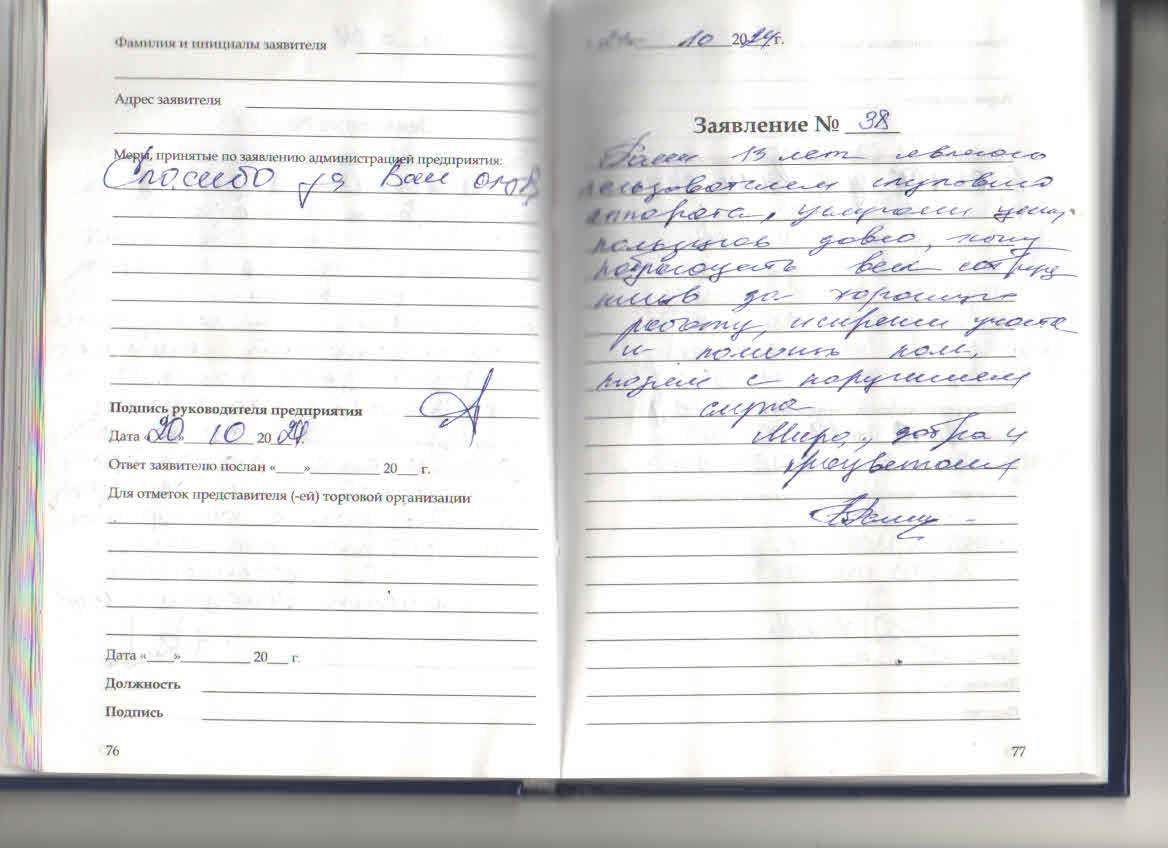 Фамилия и инициалы заявителя
Адрес заявителя
Меры, принятые по заявлению администрацией предприятия:
Спасибо за Ваш отзыв
Подпись руководителя предприятия
Дата «20» 10 2024 г.
Ответ заявителю послан «___» 20__ г.
Для отметок представителя (-ей) торговой организации
Дата «___» 20__ г.
Должность
Подпись
76
10 2024 г.
Заявление № 38
Более 13 лет являюсь
пользователем слухового
аппарата, услугами
пользуюсь давно, хочу
поблагодарить всех сотруд
ников за хорошую
работу, искреннее участие
и помощь
людям с нарушением
слуха
Мира, добра и
процветания
77